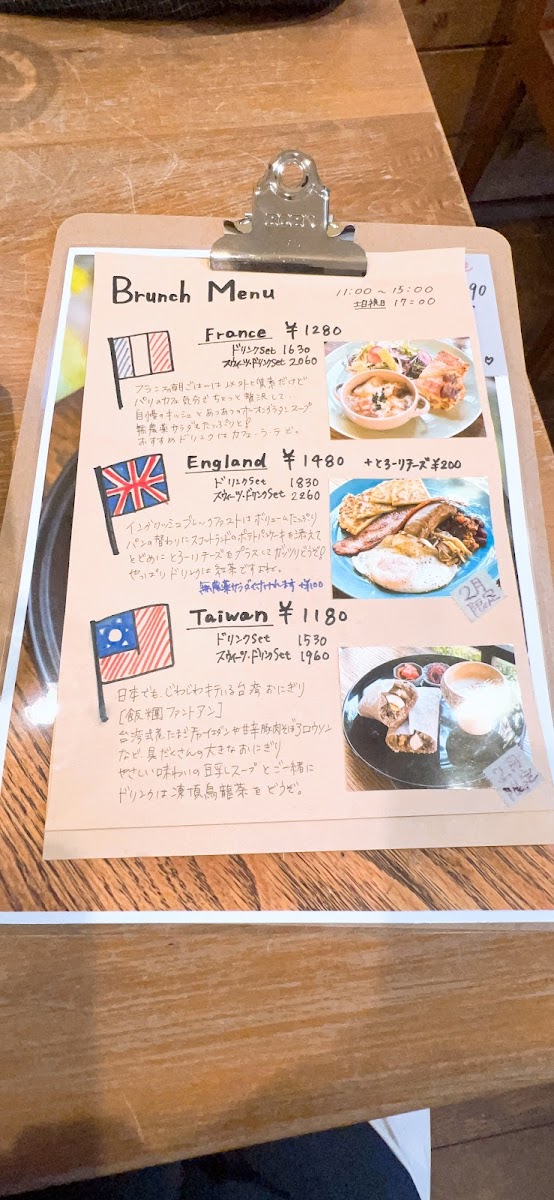 Brunch Menu
11:00 〜 15:00
土日祝日 17:00
90
France ¥1280
ドリンクSet 1630
スウィーツ・ドリンクSet 2060
パリのカフェ気分でちょっと贅沢して
自慢のキッシュとあつあつのオニオングラタンスープ
無農薬サラダもたっぷりと!
おすすめドリンクはカフェ・ラ・テ
England ¥1480 +とろーりチーズ¥200
ドリンクSet 1830
スウィーツ・ドリンクSet 2260
イングリッシュブレックファストはボリュームたっぷり
パンの替わりにスコットランドのポテトパンケーキを添えて
とどめにとろーりチーズをプラスしてガッツリどうぞ!
やっぱりドリンクは紅茶ですよね。
無農薬サラダ付けられます +¥100
2月
限定
Taiwan ¥1180
ドリンクSet 1530
スウィーツ・ドリンクSet 1960
日本でも、じわじわキテいる台湾おにぎり
[飯糰 ファントアン]
台湾式煮たまご
など具だくさんの大きなおにぎり
やさしい味わいの豆乳スープとご一緒に
ドリンクは凍頂烏龍茶をどうぞ。